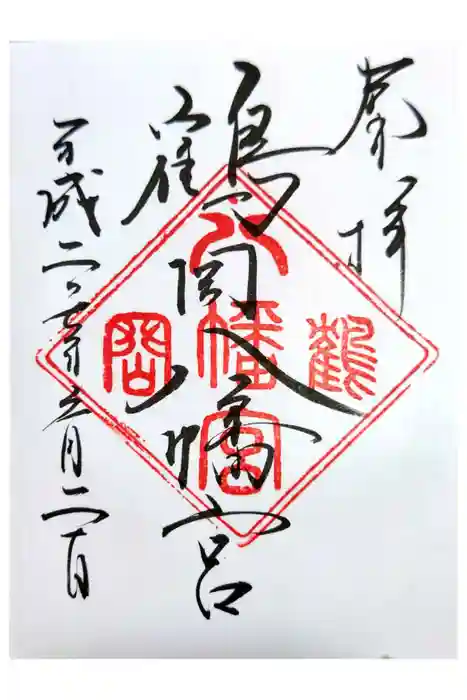 奉拝
鶴岡八幡宮
平成二十七年五月二十日
鶴
岡
八幡宮